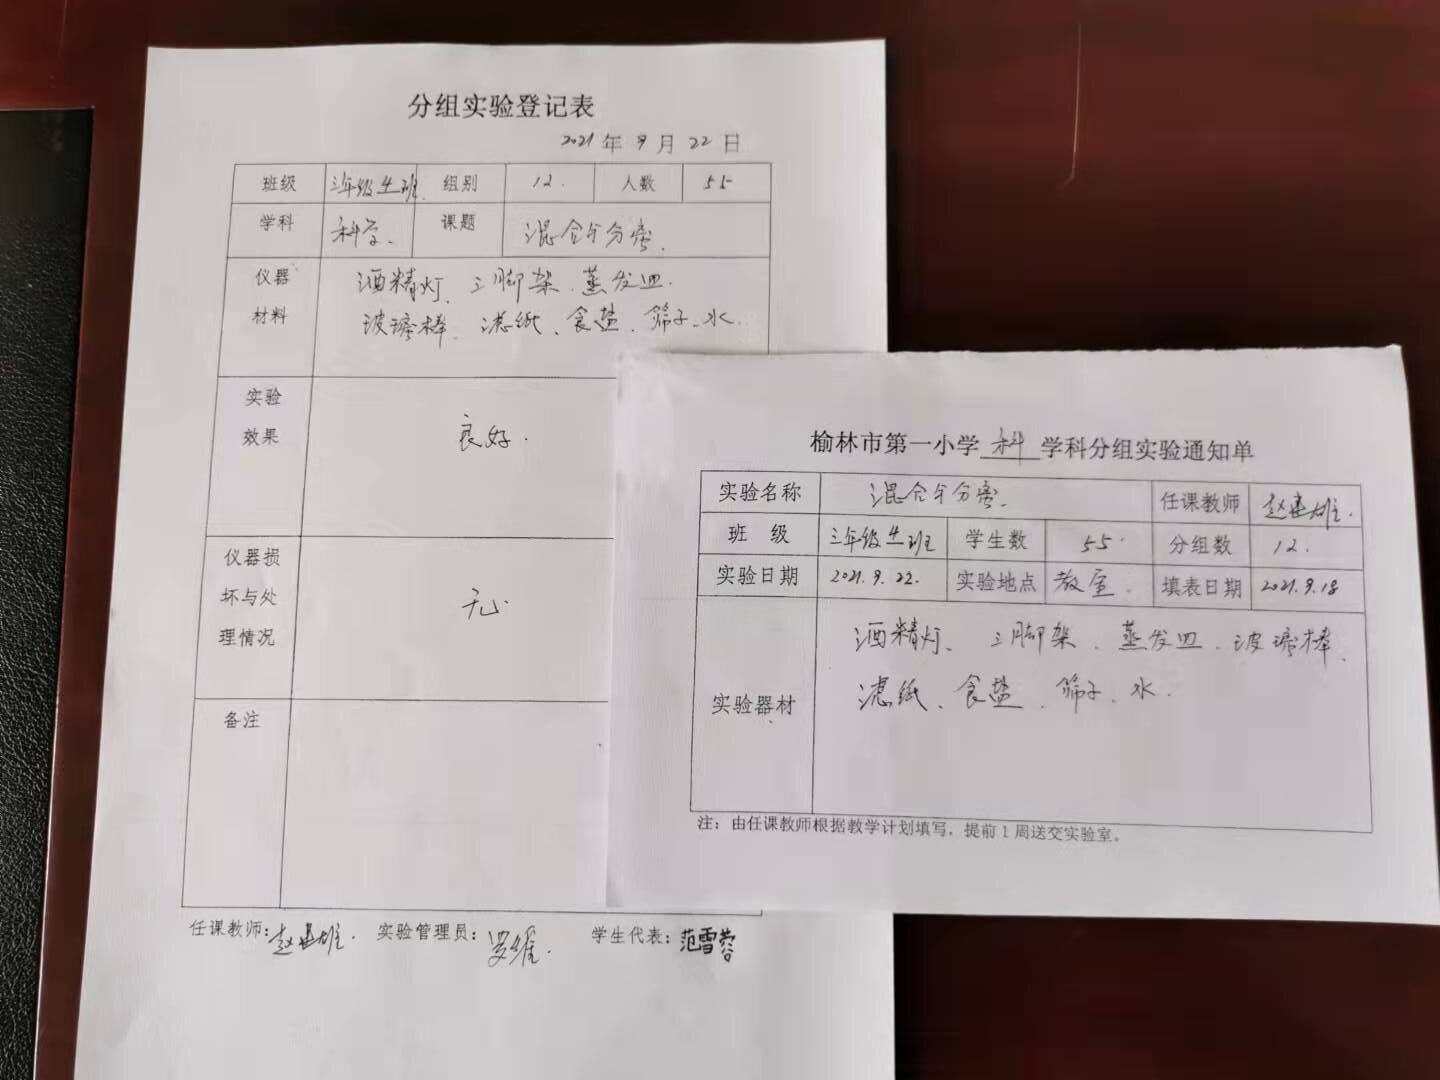 分组实验登记表
2021年9月22日
班级 三年级4班 组别 12. 人数 55
学科 科学. 课题 混合与分离.
仪器材料 酒精灯、三脚架、蒸发皿.
玻璃棒、滤纸、食盐、筛子、水.
实验效果 良好.
仪器损坏与处理情况 无.
备注
任课教师: 赵建雄. 实验管理员: 罗维. 学生代表: 范雪蓉
榆林市第一小学 科 学科分组实验通知单
实验名称 混合与分离. 任课教师 赵建雄.
班 级 三年级4班 学生数 55. 分组数 12.
实验日期 2021.9.22. 实验地点 教室. 填表日期 2021.9.18
实验器材 酒精灯、三脚架、蒸发皿、玻璃棒、
滤纸、食盐、筛子、水.
注：由任课教师根据教学计划填写，提前1周送交实验室。